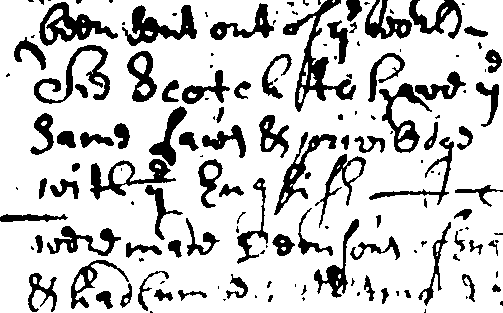 been sent out of yᵉ world
The Scotch to have yᵉ
same Laws & priviledge
with yᵉ English
were made Denisons of Eng
& had